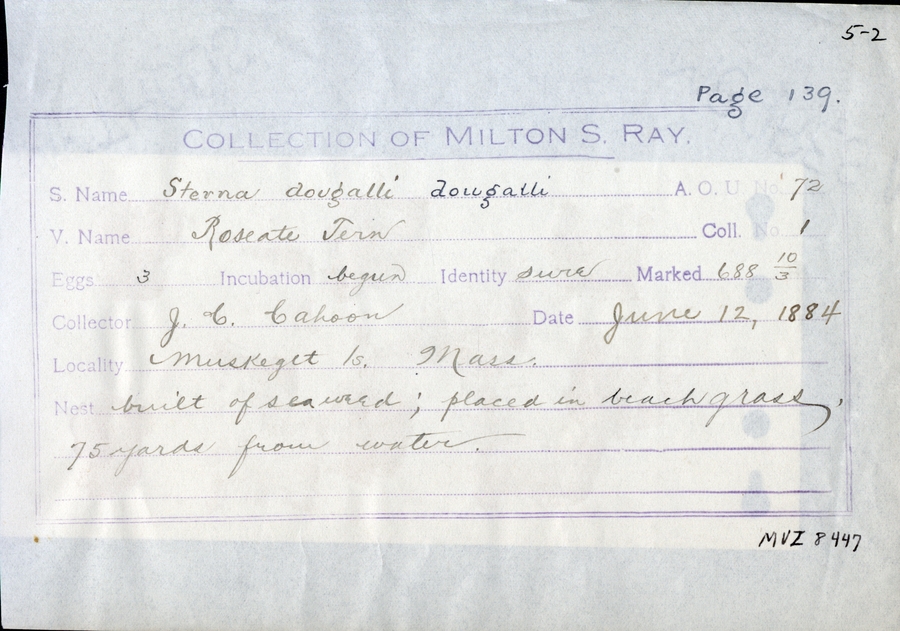 5-2
Page 139.
COLLECTION OF MILTON S. RAY.
S. Name Sterna dougalli dougalli A. O. U. No. 72
V. Name Roseate Tern Coll. No. 1
Eggs 3 Incubation begun Identity sure Marked 688 10/3
Collector J. C. Cahoon Date June 12, 1884
Locality Muskeget Is. Mass.
Nest built of seaweed; placed in beach grass,
75 yards from water.
MVZ 8447